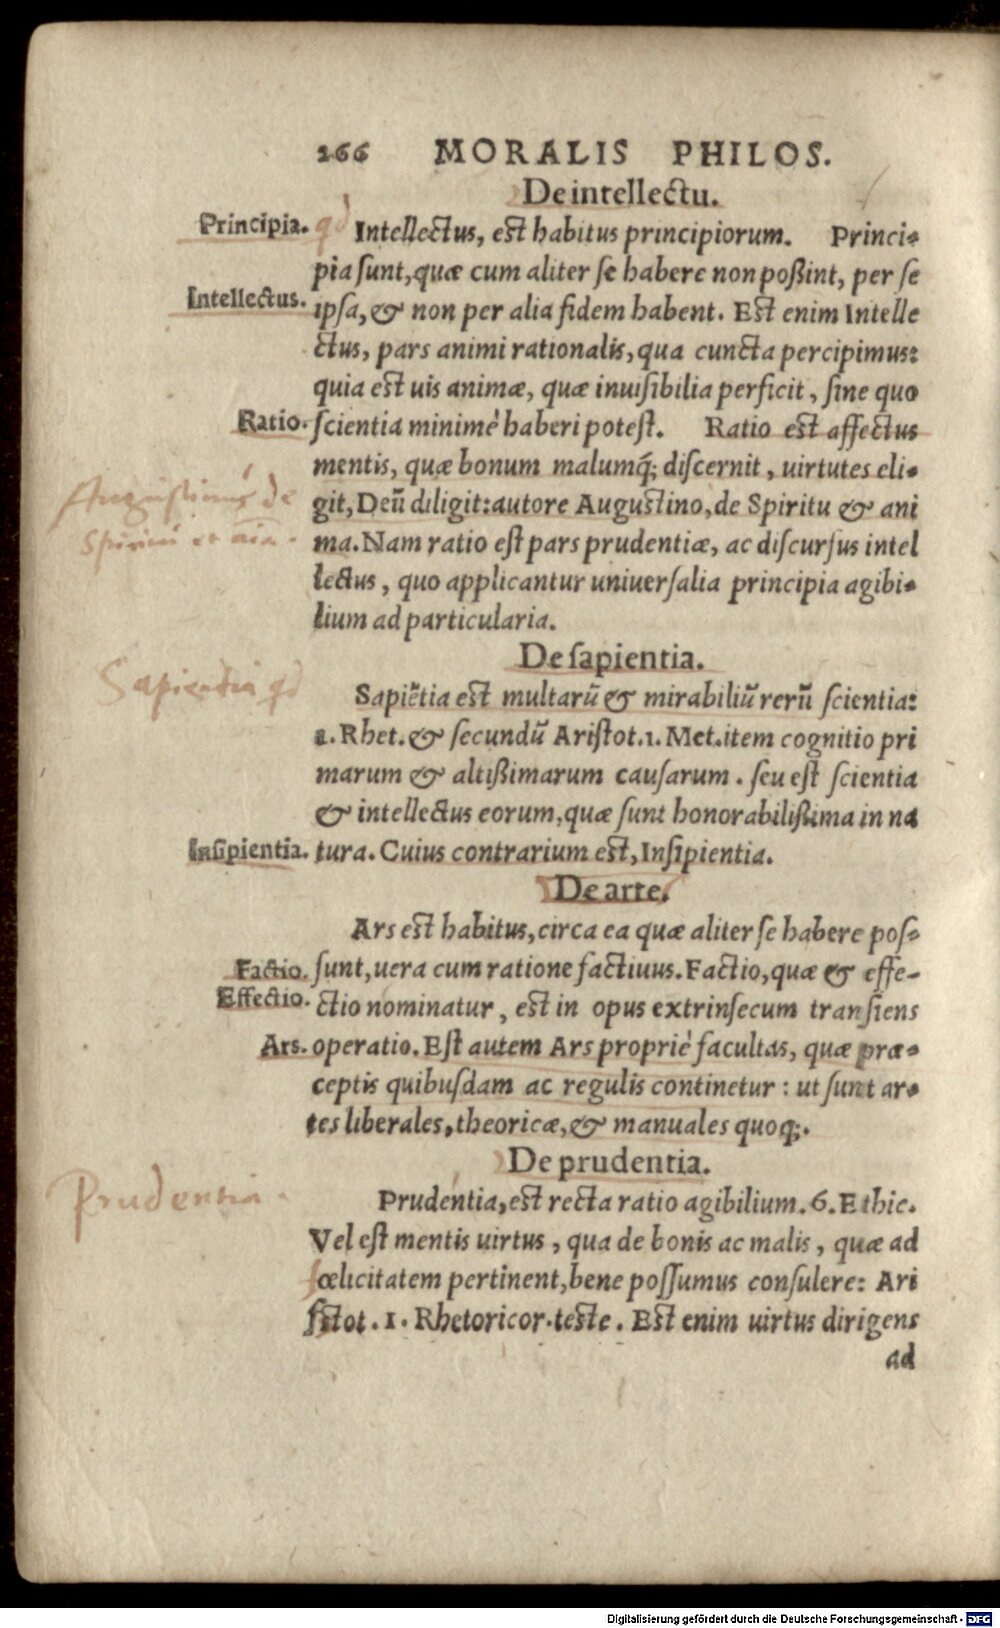 266 MORALIS PHILOS.
De intellectu.
Principia. qd Intellectus, est habitus principiorum. Princi-
pia sunt, quæ cum aliter se habere non poßint, per se
Intellectus. ipsa, & non per alia fidem habent. Est enim Intelle
ctus, pars animi rationalis, qua cuncta percipimus:
quia est uis animæ, quæ inuisibilia perficit, sine quo
Ratio. scientia minimè haberi potest. Ratio est affectus
mentis, quæ bonum malumq́; discernit, uirtutes eli-
Augustinus de
git, Deũ diligit: autore Augustino, de Spiritu & ani
Spiritu et aĩa.
ma. Nam ratio est pars prudentiæ, ac discursus intel
lectus, quo applicantur uniuersalia principia agibi-
lium ad particularia.
De sapientia.
Sapientia qd
Sapiẽtia est multarũ & mirabiliũ rerũ scientia:
1. Rhet. & secundũ Aristot. 1. Met. item cognitio pri
marum & altißimarum causarum. seu est scientia
& intellectus eorum, quæ sunt honorabilißima in na
Insipientia. tura. Cuius contrarium est, Insipientia.
De arte.
Ars est habitus, circa ea quæ aliter se habere pos-
Factio. sunt, uera cum ratione factiuus. Factio, quæ & effe-
Effectio. ctio nominatur, est in opus extrinsecum transiens
Ars. operatio. Est autem Ars propriè facultas, quæ præ-
ceptis quibusdam ac regulis continetur: ut sunt ar-
tes liberales, theoricæ, & manuales quoq;.
De prudentia.
Prudentia.
Prudentia, est recta ratio agibilium. 6. Ethic.
Vel est mentis uirtus, qua de bonis ac malis, quæ ad
fœlicitatem pertinent, bene possumus consulere: Ari
stot. 1. Rhetoricor. teste. Est enim uirtus dirigens
ad
Digitalisierung gefördert durch die Deutsche Forschungsgemeinschaft - DFG